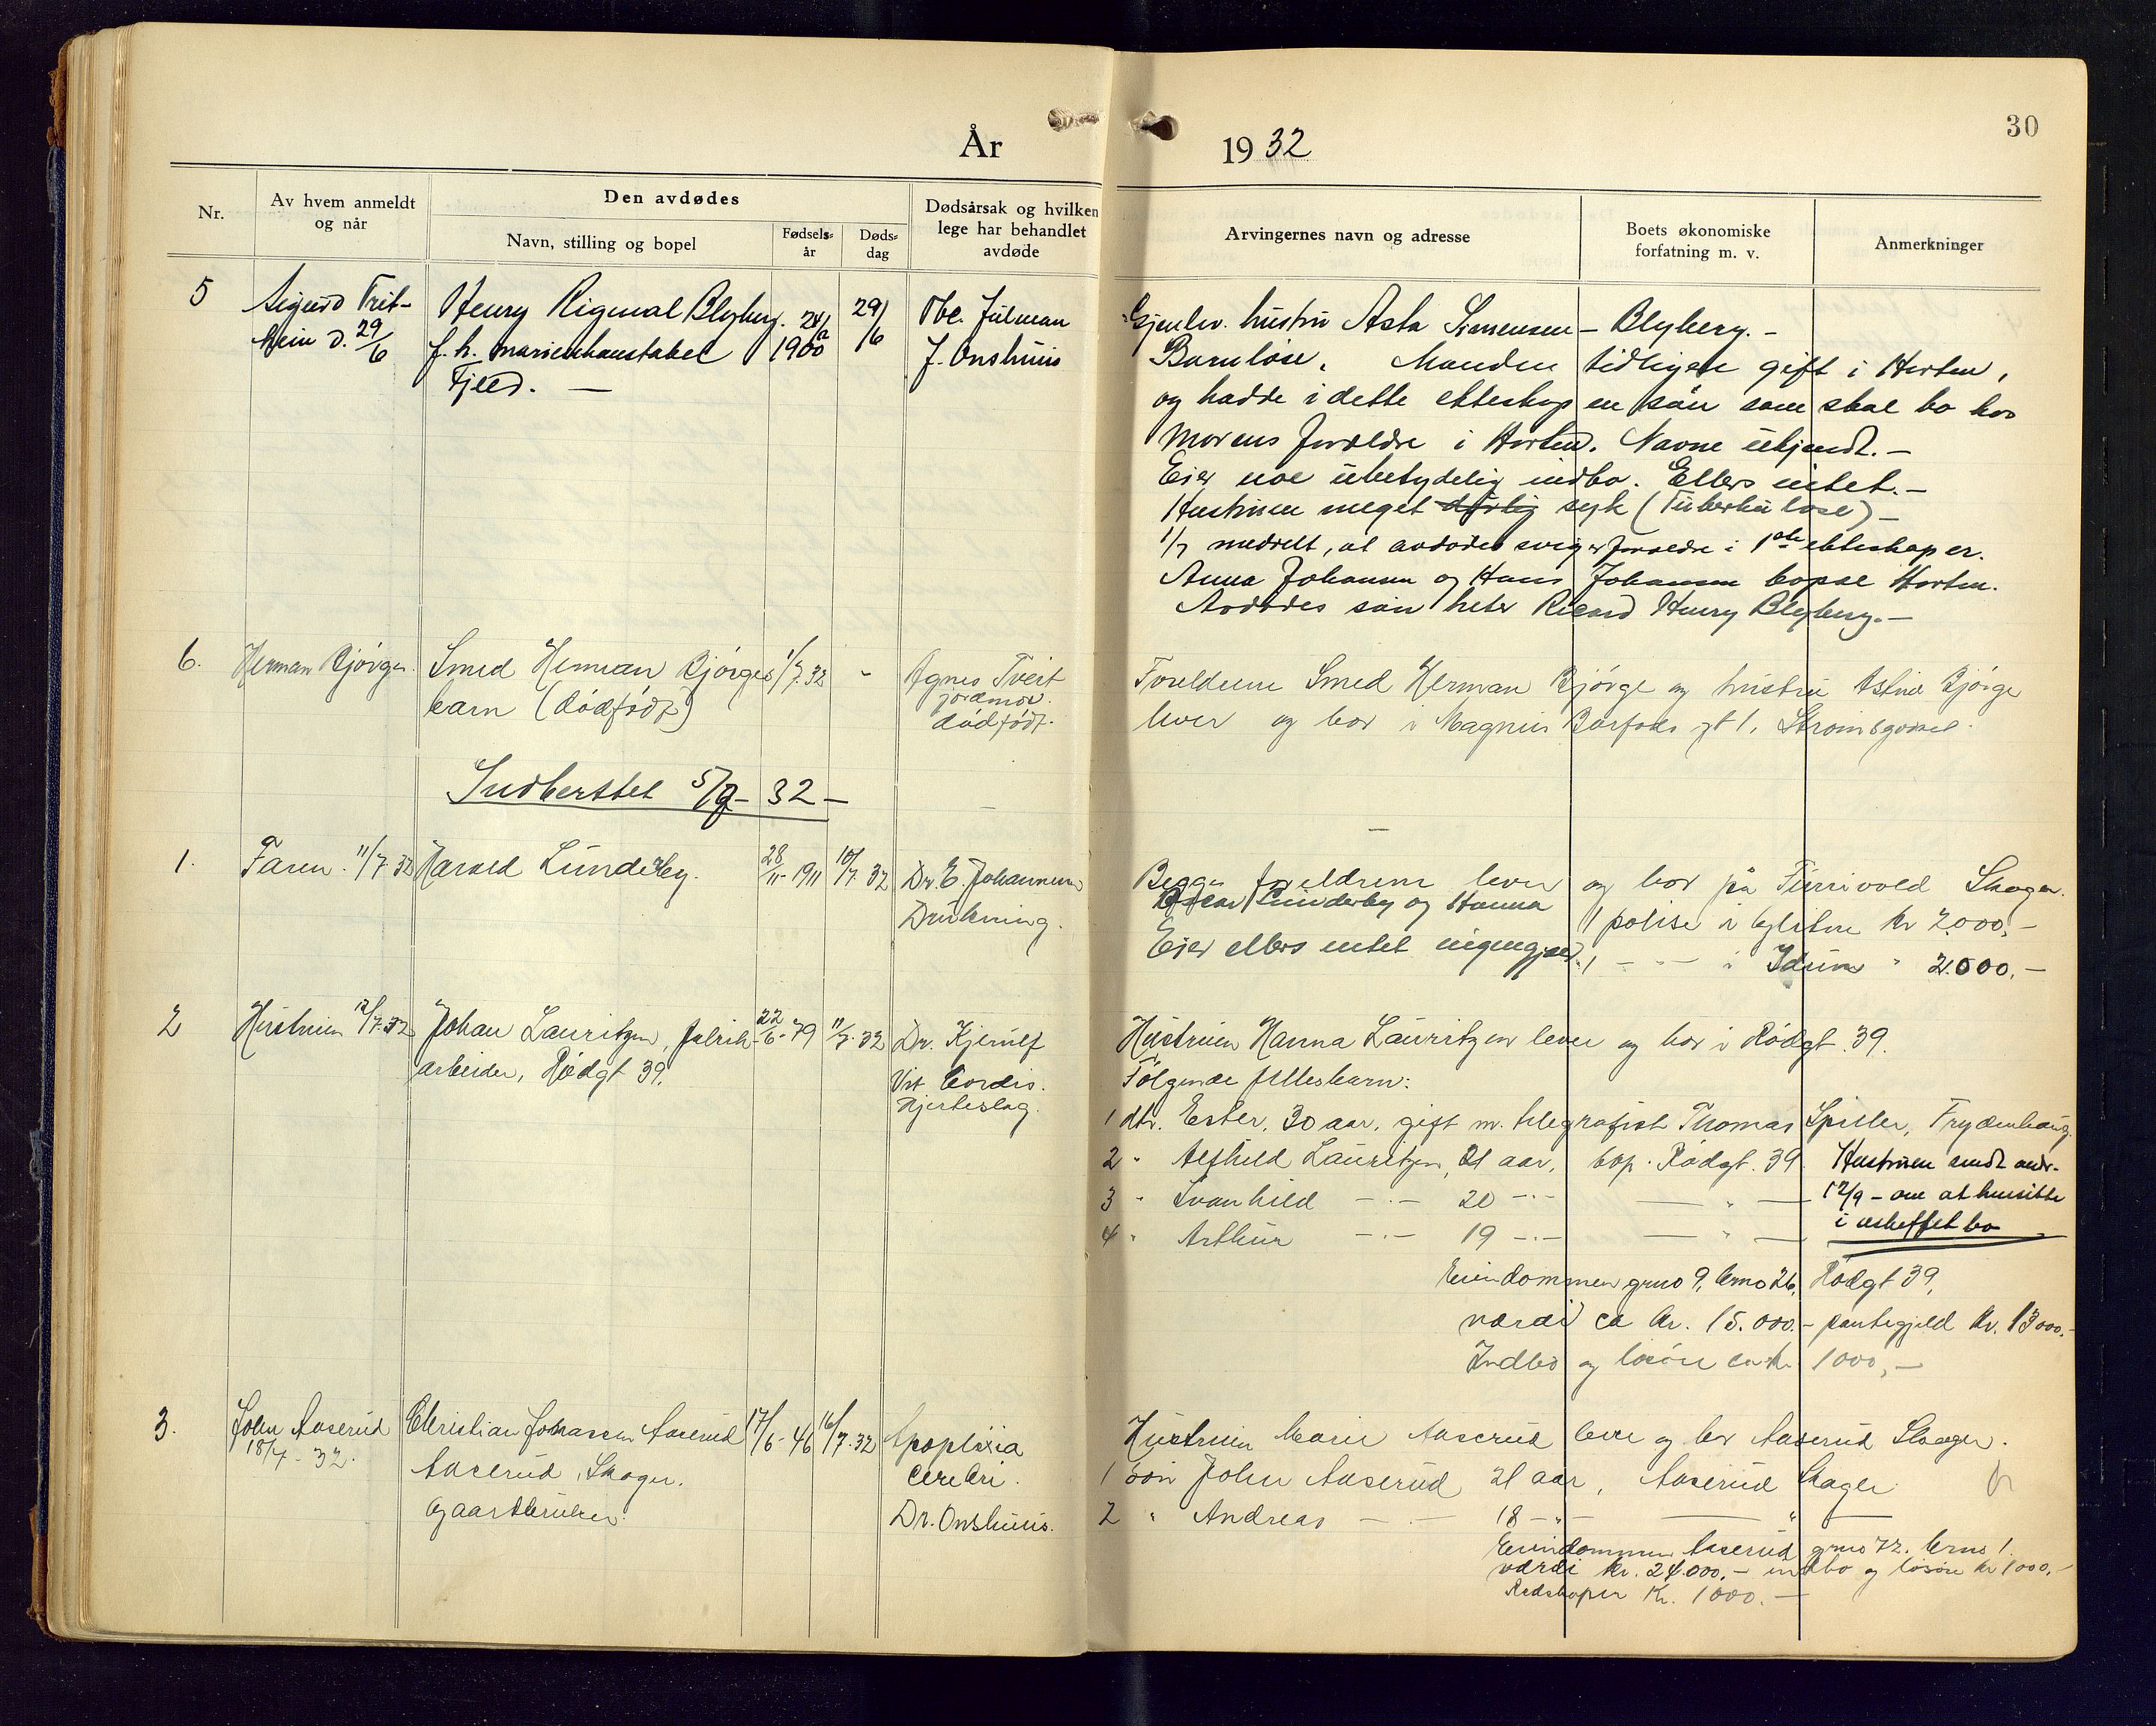 År 1932
30
Nr.
Av hvem anmeldt og når
Den avdødes
Navn, stilling og bopel
Fødsels-år
Døds-dag
Dødsårsak og hvilken lege har behandlet avdøde
Arvingernes navn og adresse
Boets økonomiske forfatning m. v.
Anmerkninger
5
Sigurd Trit-
heim d. 29/6
Henry Rigmal Blyberg.
f. h. marinekonstabel
Fjell. —
1900
29/6
Tbc. Pulmon
J. Onshuus
Gjenlev. hustru Asta Simensen - Blyberg. -
Barnløse. Manden tidligere gift i Horten,
og hadde i dette ekteskap en søn som skal bo hos
morens forældre i Horten. Navne ukjendt. -
Eier noe ubetydelig indbo. Ellers intet. -
Hustruen meget dårlig syk (Tuberkulose) -
1/7 meddelt, at avdødes svigerforældre i 1ste ekteskap er.
Anna Johansen og Hans Johansen bopæl Horten.
Avdødes søn heter Ricard Henry Blyberg. -
6.
Herman Bjørge.
Smed Herman Bjørges
barn (dødfødt)
1/7. 32
-
Agnes Tveit
jordmor.
dødfødt.
Foreldrene Smed Herman Bjørge og hustru Astrid Bjørge
lever og bor i Magnus Barfods gt 1. Strømsgodset.
Indberettet 5/7- 32 -
1.
Faren. 11/7. 32
Harald Lunderby.
28/11- 1911
10/7. 32
Dr. E. Johannesen
Drukning.
Begge foreldrene lever og bor på Furuvold Skoger.
Oscar Lunderby og Hanna
1 polise i Glitne kr 2000,-
Eier ellers intet ingengjæld.
1 - " - i Idun " 2.000,-
2
Hustruen 12/7. 32
Johan Lauritzen, fabrik-
arbeider, Rødgt 39.
22/6- 79
11/7. 32
Dr. Kjerulf
Vit. Cordis.
Hjerteslag.
Hustruen Hanna Lauritzen lever og bor i Rødgt. 39.
Følgende fellesbarn:
1 dtr. Ester, 30 aar, gift m. telegrafist Thomas Spiller, Frydenhaug.
2 " Alfhild Lauritzen, 21 aar, bop. Rødgt. 39
3 " Svanhild -.- 20 -.- — " —
4 " Arthur -.- 19 -.- — " —
Hustruen sendt andr.
12/9 - om at hensitte
i uskiftet bo
Eiendommen grno 9, brno 26, Rødgt 39,
værdi ca kr. 15.000.- pantegjeld kr. 13000.-
Indbo og løsøre ca kr. 1000,-
3.
John Aaserud
18/7- 32.
Christian Johansen Aaserud
Aaserud, Skoger.
Gaardbruker.
17/6- 46
16/7- 32
Apoplexia
cerebri.
Dr. Onshuus.
Hustruen Marie Aaserud lever og bor Aaserud Skoger.
1 søn John Aaserud 21 aar, Aaserud Skoger
2 " Andreas — 18 -"- — " —
Eiendommen Aaserud grno 72. brno 1.
værdi kr. 24.000.- indbo og løsøre kr 1000.-
Redskaper Kr. 1000. -